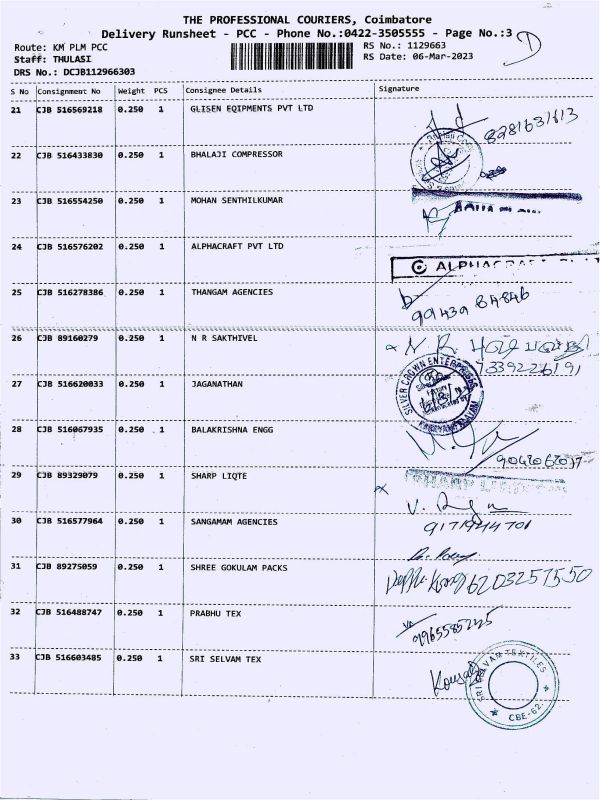 THE PROFESSIONAL COURIERS, Coimbatore
Delivery Runsheet - PCC - Phone No.:0422-3505555 - Page No.:3
Route: KM PLM PCC
RS No.: 1129663
Staff: THULASI
RS Date: 06-Mar-2023
DRS No.: DCJB112966303
S No Consignment No Weight PCS Consignee Details Signature
21 CJB 516569218 0.250 1 GLISEN EQIPMENTS PVT LTD
22 CJB 516433830 0.250 1 BHALAJI COMPRESSOR
23 CJB 516554250 0.250 1 MOHAN SENTHILKUMAR
24 CJB 516576202 0.250 1 ALPHACRAFT PVT LTD
25 CJB 516278386 0.250 1 THANGAM AGENCIES
26 CJB 89160279 0.250 1 N R SAKTHIVEL
27 CJB 516620033 0.250 1 JAGANATHAN
SILVER CROWN ENTERPRISES
28 CJB 516067935 0.250 1 BALAKRISHNA ENGG
29 CJB 89329079 0.250 1 SHARP LIQTE
30 CJB 516577964 0.250 1 SANGAMAM AGENCIES
31 CJB 89275059 0.250 1 SHREE GOKULAM PACKS
6203257550
32 CJB 516488747 0.250 1 PRABHU TEX
33 CJB 516603485 0.250 1 SRI SELVAM TEX
SRI SELVAM TEXTILES
CBE-62.